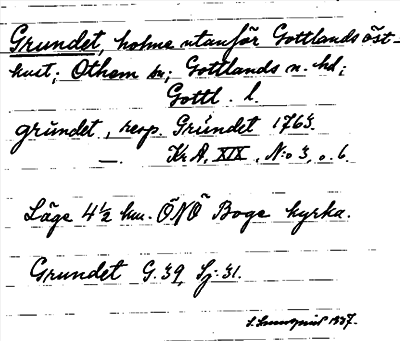 Grundet, holme utanför Gottlands öst-
kust; Othem sn; Gottlands n. hd;
Gottl. l.
grundet, resp. Grundet 1763.
— Kr A, XIX, N:o 3, o. 6.
Läge 4½ km. ÖNÖ Boge kyrka.
Grundet G. 39, Sj. 31.
1937.